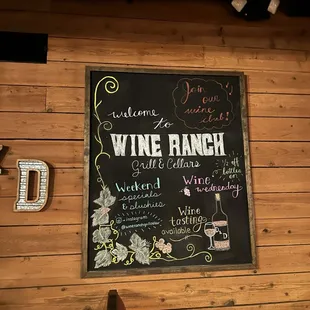 Join
our
wine
club!
welcome
to
WINE RANCH
Grill & Cellars
Weekend
specials
& slushies
Wine
wednesday
1/2 off
bottles
Wine
tastings
available
instagram
D